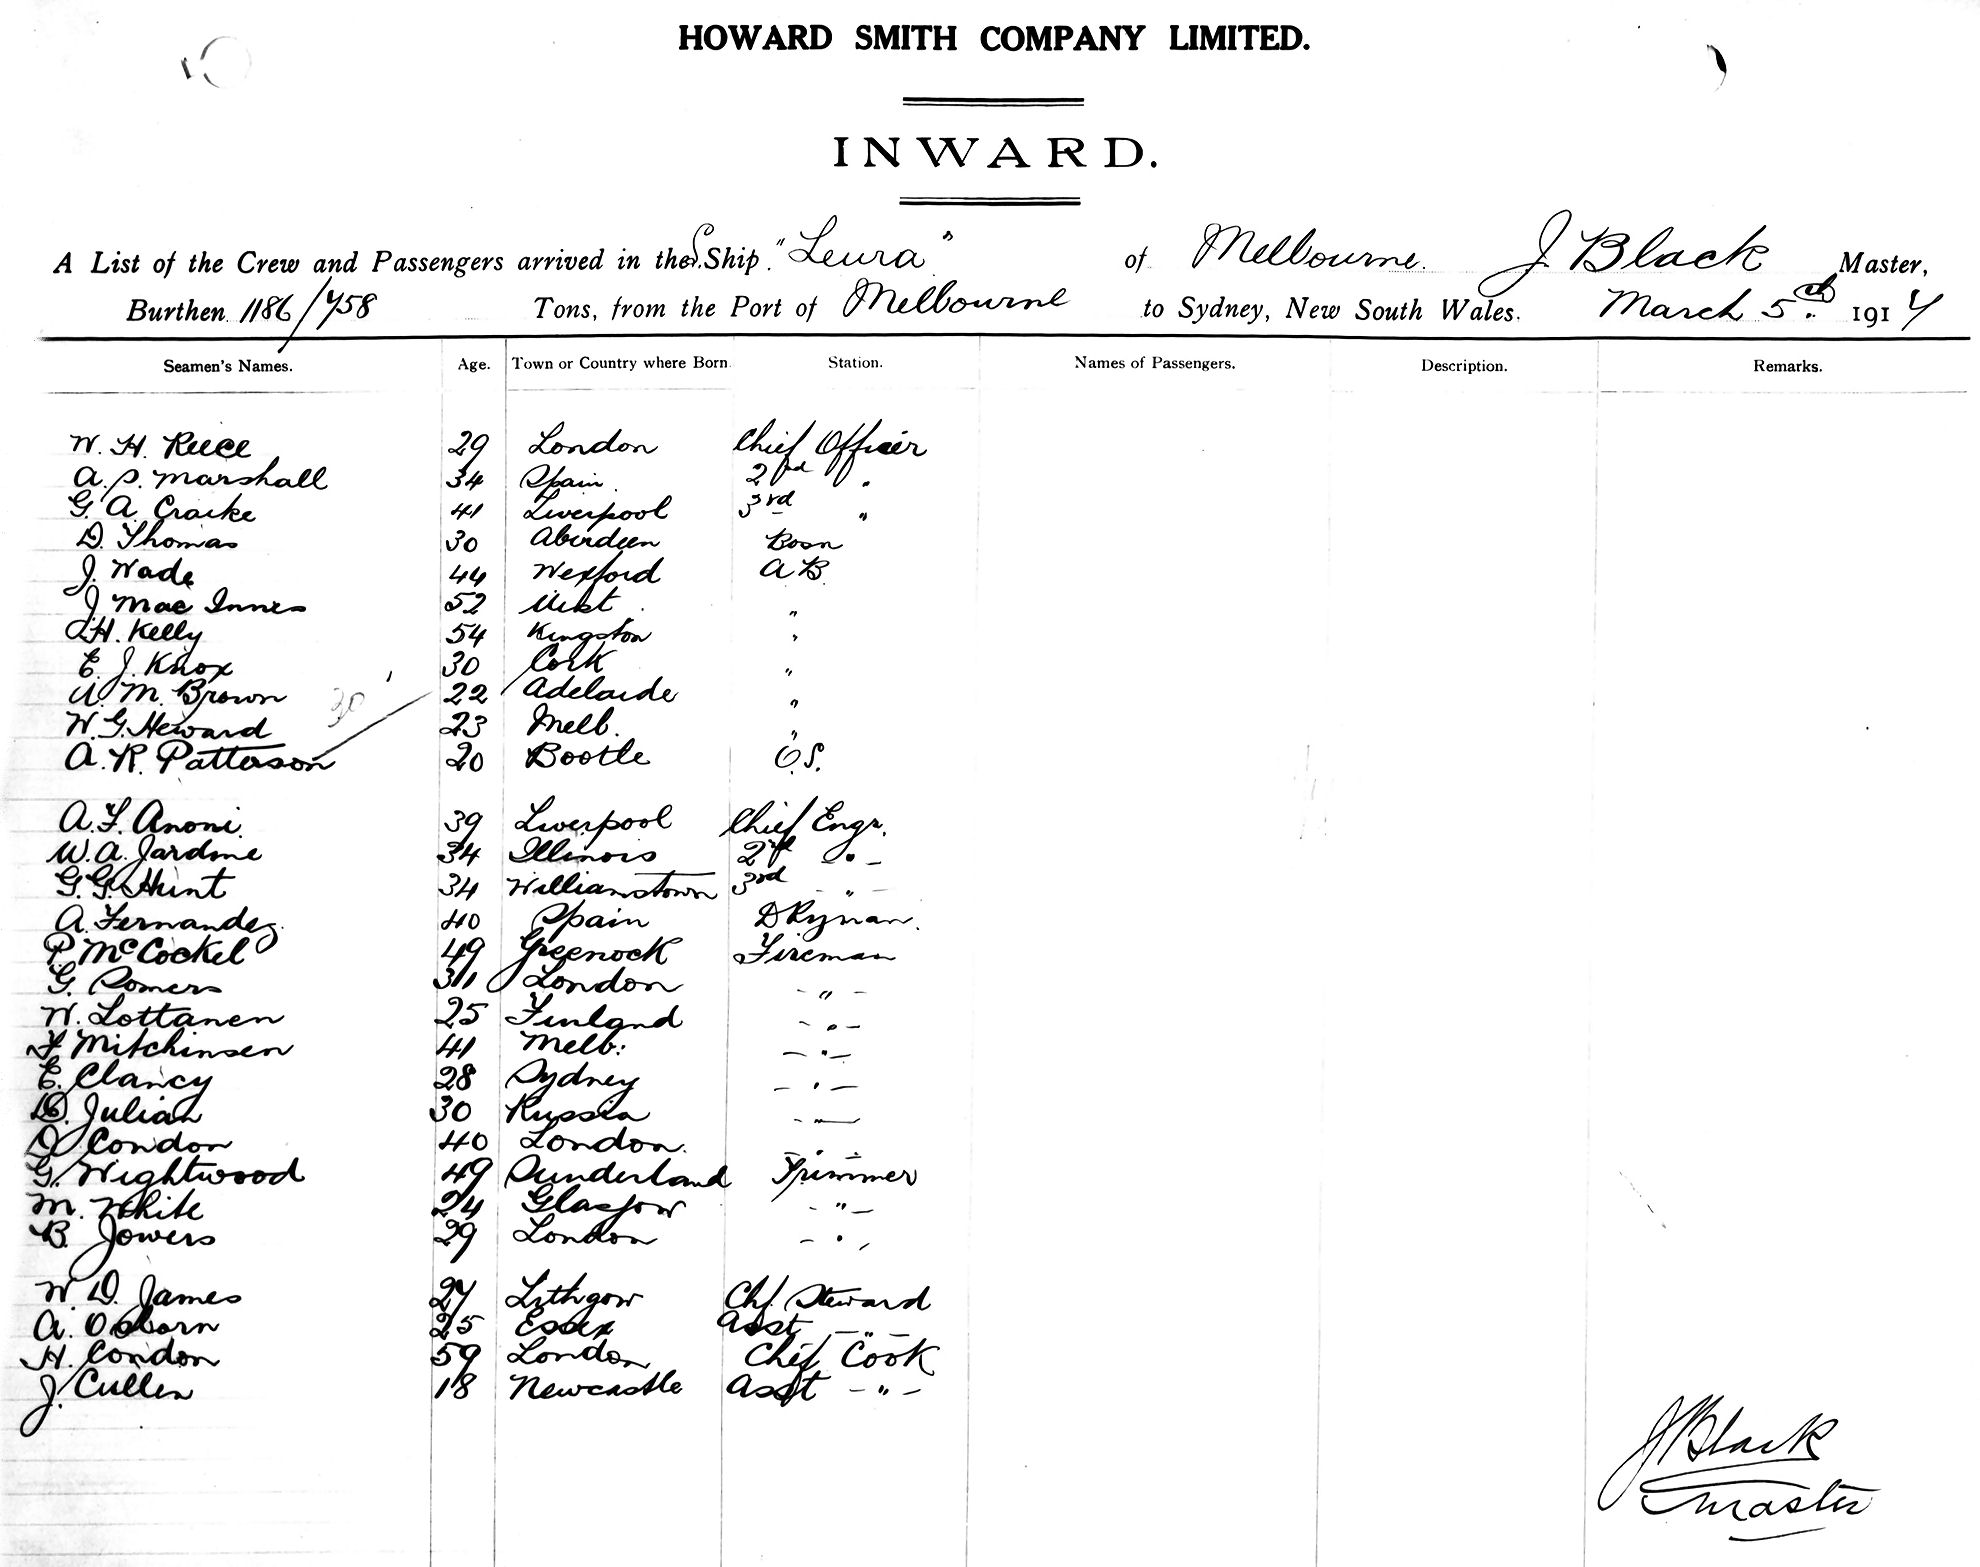 HOWARD SMITH COMPANY LIMITED.
INWARD.
A List of the Crew and Passengers arrived in the S. Ship "Leura" of Melbourne. J. Black Master,
Burthen 1186/758 Tons, from the Port of Melbourne to Sydney, New South Wales. March 5th 1914
Seamen's Names. Age. Town or Country where Born. Station. Names of Passengers. Description. Remarks.
W. H. Reece 29 London Chief Officer
A. S. Marshall 34 Spain 2nd "
G. A. Craike 41 Liverpool 3rd "
D. Thomas 30 Aberdeen Bosn
J. Wade 44 Wexford A B
J. Mac Innes 52 Uist "
H. Kelly 54 Kingston "
E. J. Knox 30 Cork "
A. M. Brown 22 Adelaide "
30
W. G. Heward 23 Melb. "
A. R. Patterson 20 Bootle O.S.
A. F. Anoni 39 Liverpool Chief Engr.
W. A. Jardine 34 Illinois 2nd - " -
G. G. Hunt 34 Williamstown 3rd - " -
A. Fernandez 40 Spain DKyman.
P. McCockel 49 Greenock Fireman
G. Somers 311 London - " -
W. Lottanen 25 Finland - " -
F. Mitchinsen 41 Melb: - " -
E. Clancy 28 Sydney - " -
D. Julian 30 Russia - " -
D. Condon 40 London. - " -
G. Wightwood 49 Sunderland Trimmer
M. White 24 Glasgow - " -
B. Jowers 29 London - " -
W. D. James 27 Lithgow Chf. Steward
A. Osborn 25 Essex Asst - " -
H. Condon 59 London Chef Cook
J. Cullen 18 Newcastle Asst - " -
J Black
Master